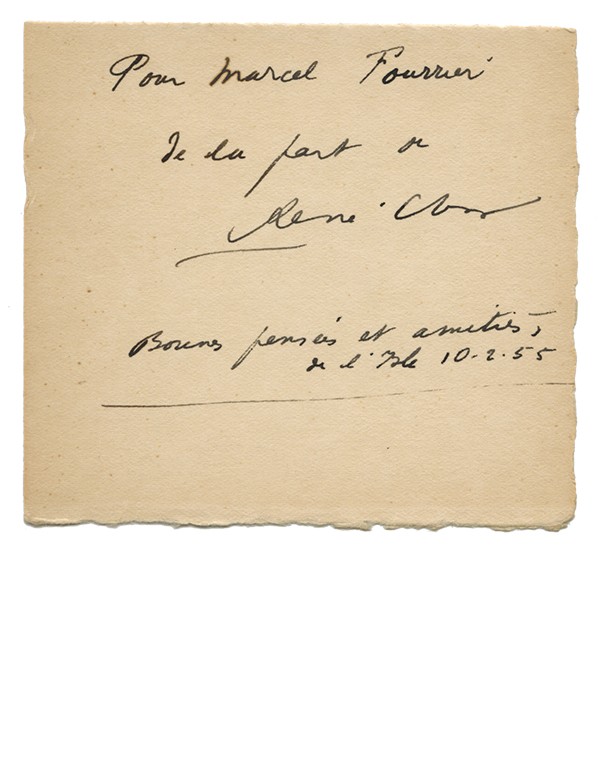 Pour Marcel Fourrier
de la part de
René Char
Bonnes pensées et amitiés,
de l'Isle 10-2-55